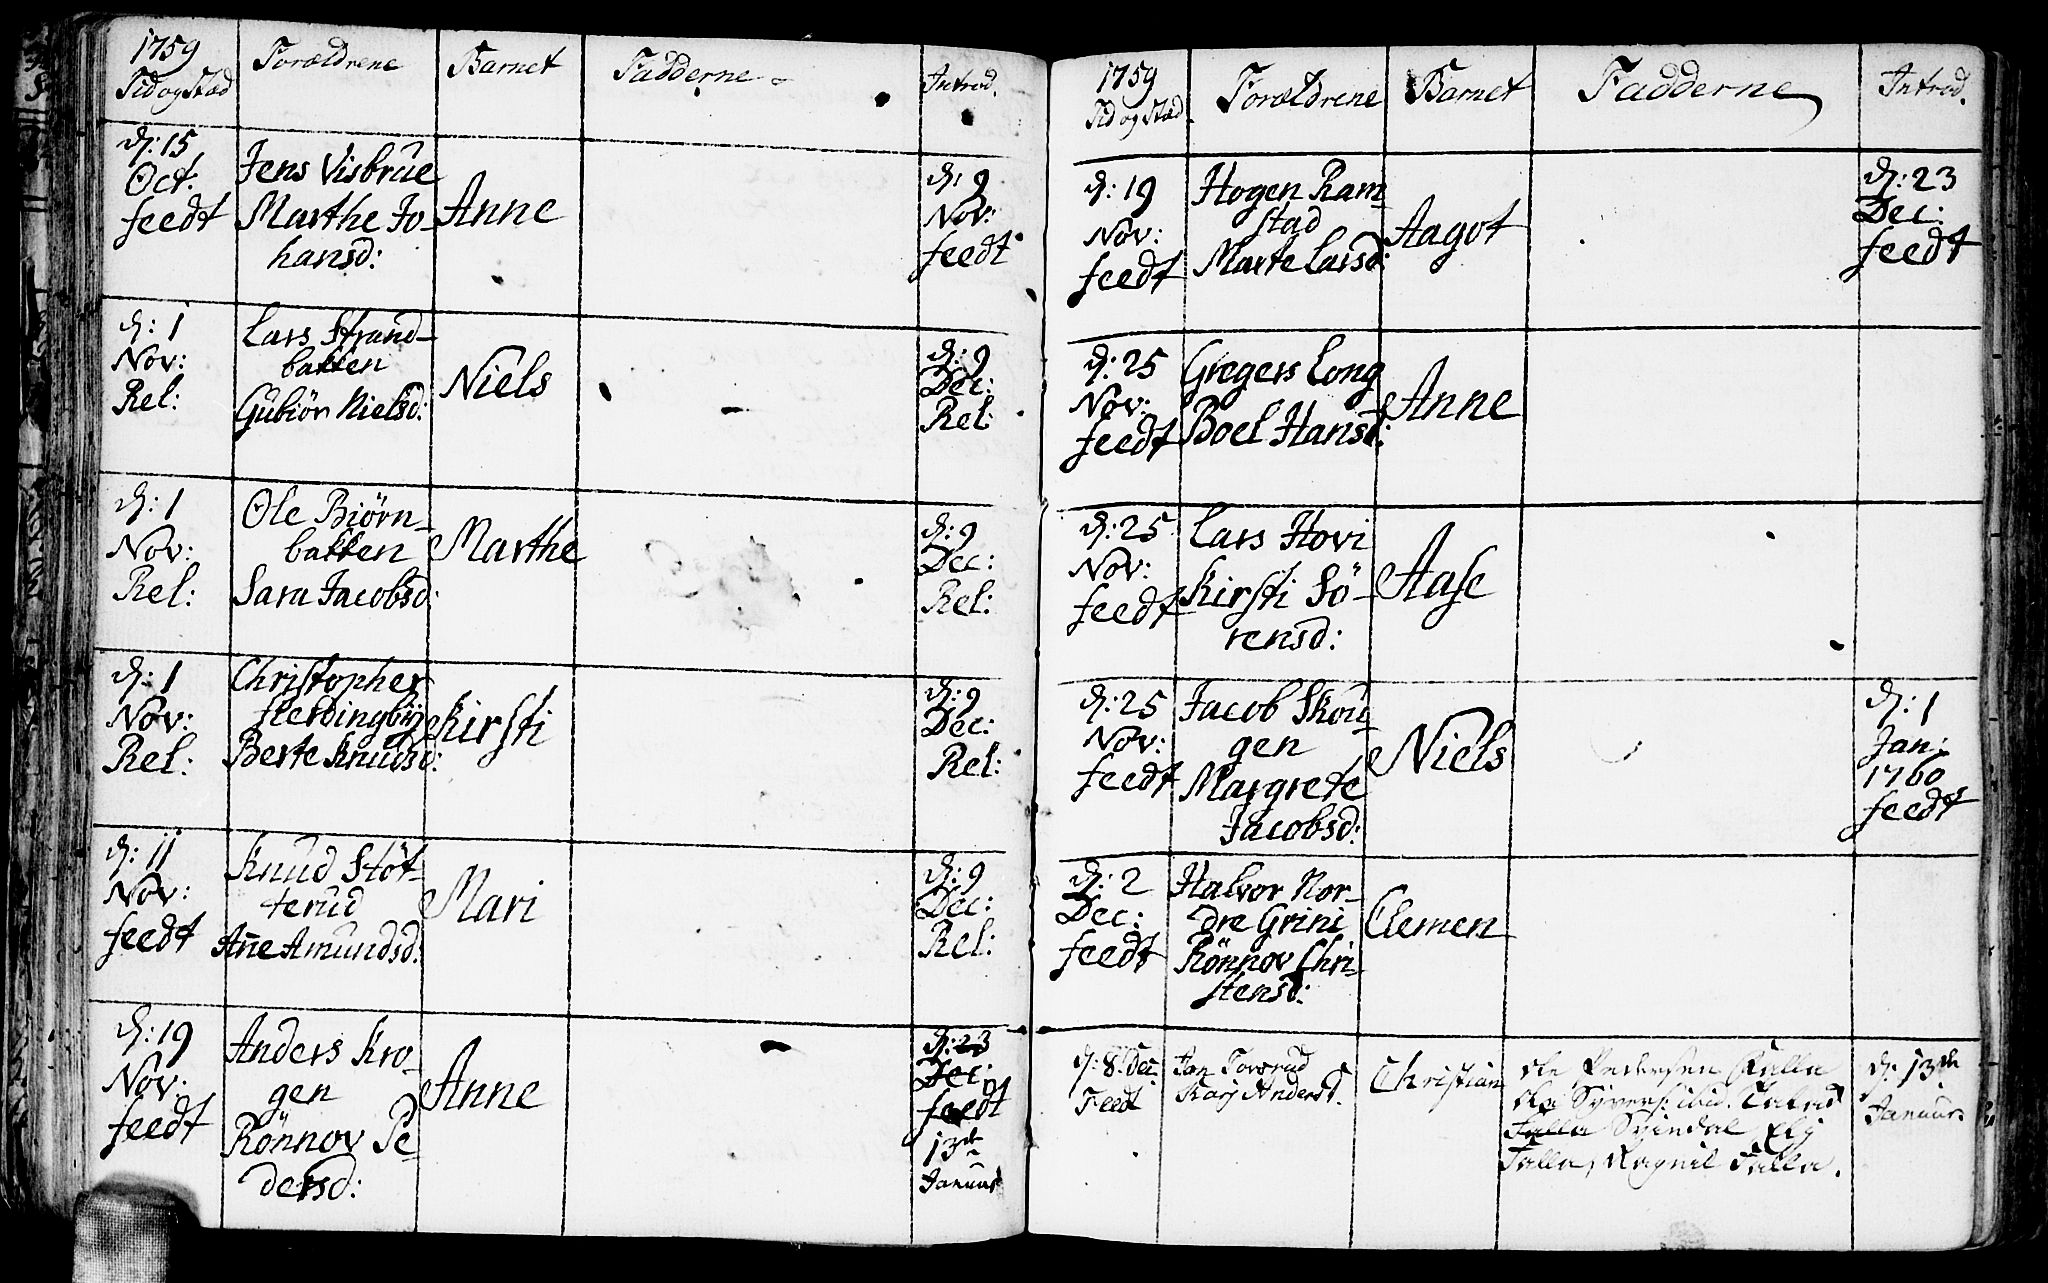 1759
Tid og Stæd
Forældrene
Barnet
Fadderne
Introd.
d: 15
Oct.
feedt
Jens Visbrue
Marthe Jo-
hansd:
Anne
d: 9
Nov:
feedt
d: 1
Nov:
Rel:
Lars Strand-
bakken
Gubiör Nielsd:
Niels
d: 9
Dec:
Rel:
d: 1
Nov:
Rel:
Ole Biörn-
bakken
Sara Jacobsd:
Marthe
d: 9
Dec:
Rel:
d: 1
Nov:
Rel:
Christopher
Berte Knudsd:
Kirsti
d: 9
Dec:
Rel:
d: 11
Nov:
feedt
Knud Stöt-
terud
Añe Amundsd:
Mari
d: 9
Dec:
Rel:
d: 19
Nov:
feedt
Anders Kro-
gen
Rönnov Pe-
dersd:
Anne
d: 23
Dec:
feedt
13de
Januar
1759
Tid og Stæd.
Forældrene
Barnet
Fadderne
Introd.
d: 19
Nov:
feedt
Hogen Ram-
stad
Marte Larsd:
Aagot
d: 23
Dec:
feedt
d: 25
Nov:
feedt
Gregers Long
Boel Hansd:
Anne
d: 25
Nov:
feedt
Lars Hovi
Kirsti Sö-
rensd:
Aase
d: 25
Nov:
feedt
Jacob Skou-
gen
Margrete
Jacobsd:
Niels
d: 1
Jan:
1760
feedt
d: 2
Dec:
feedt
Halvor Nor-
dre Grini
Rönnov Chri-
stensd:
Clemen
d: 8. Dec:
Feedt
Jan
Kari Andersd.
Christian
Ole Pedersen Falla
Ole Syvers: ibid.
Falla
Falla, Ragnil Falla.
d. 13de
Januar.